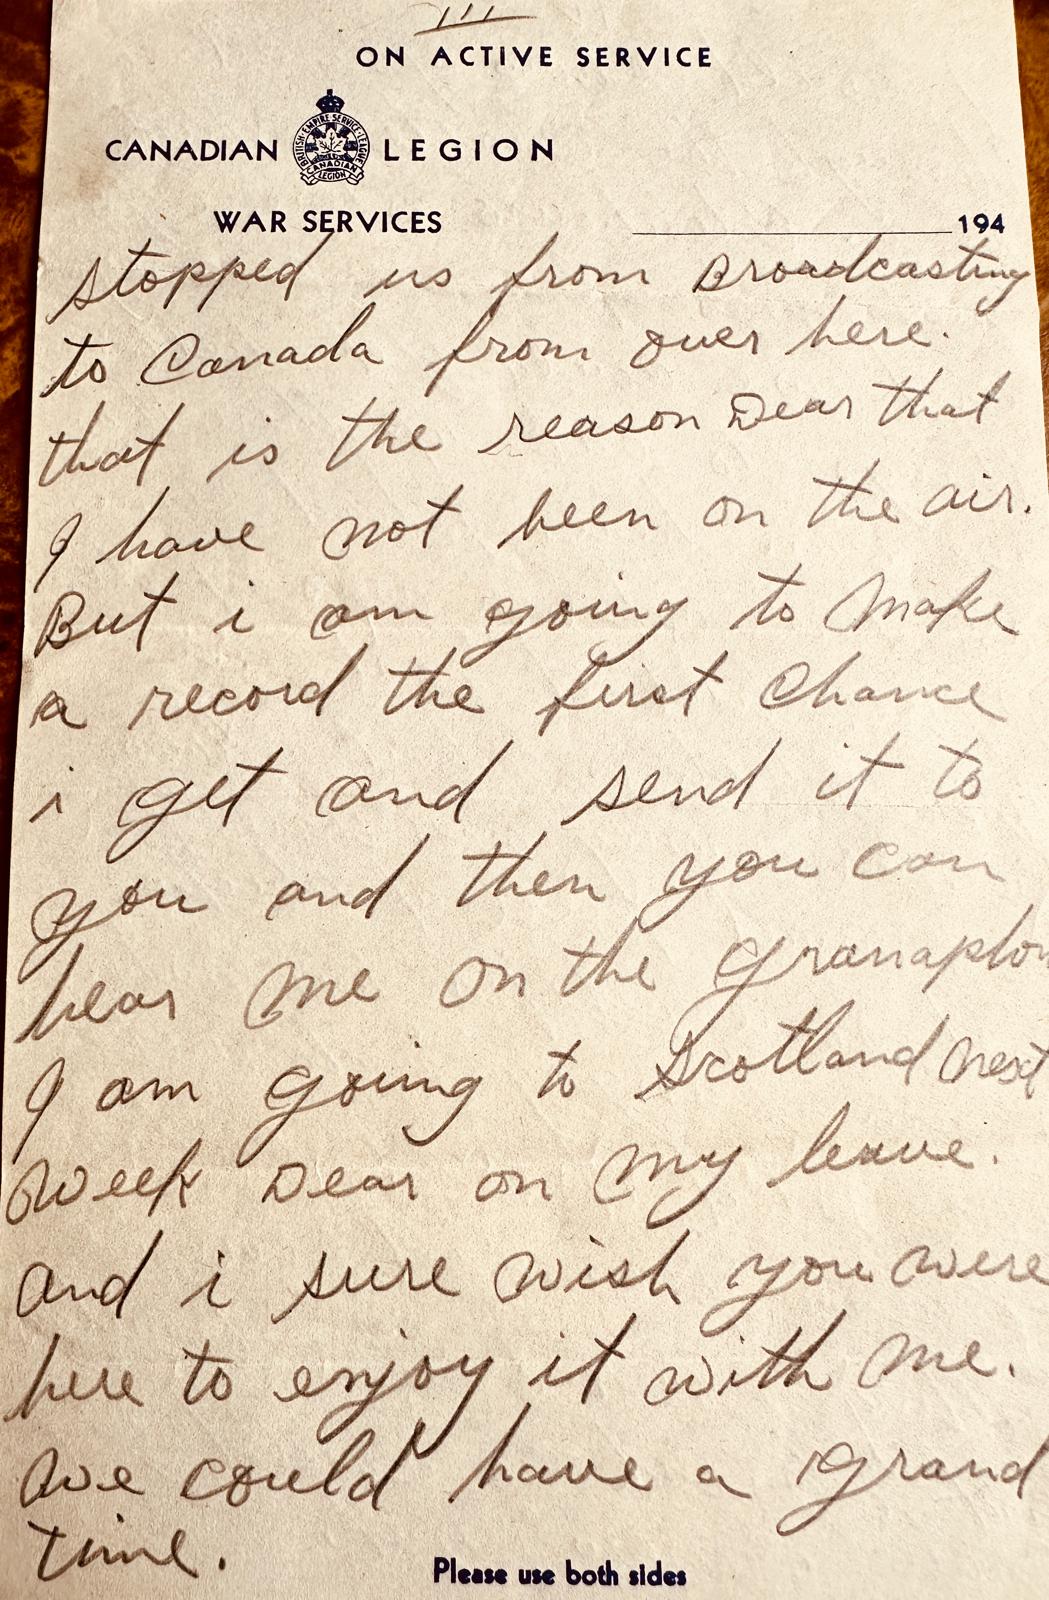 III
ON ACTIVE SERVICE
BRITISH EMPIRE SERVICE LEAGUE
CANADIAN LEGION
CANADIAN LEGION
WAR SERVICES 194
stopped us from Broadcasting
to Canada from over here.
that is the reason Dear that
I have not been on the air.
But i am going to make
a record the first chance
i get and send it to
you and then you can
hear me on the granaphon
I am going to Scotland next
week Dear on my leave.
and i sure wish you were
here to enjoy it with me.
we could have a grand
time.
Please use both sides